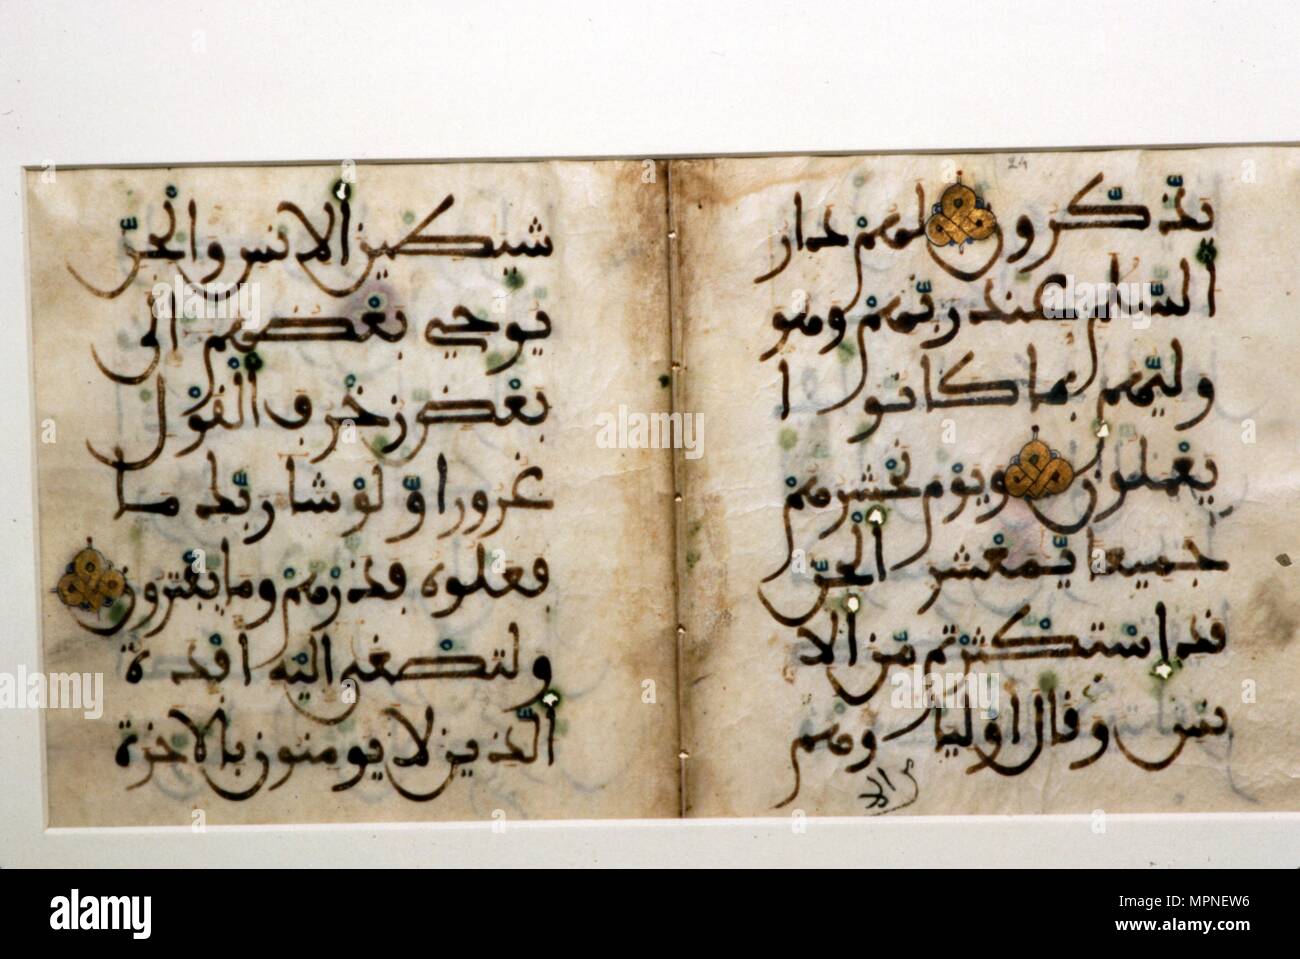 24
يذكرون لهم دار
السّلم عند ربّهم وهو
وليّهم بما كانوا
يعملون ويوم نحشرهم
جميعا يمعشر الجنّ
قد استكثرتم مّن الا
نس وقال اوليا وهم
شيطين الانس والجنّ
يوحي بعضهم الى
بعض زخرف القول
غرورا وّلو شا ربّك ما
فعلوه فذرهم وما يفترون
ولتصغى اليه افدة
الّذين لا يومنون بالاخرة
alamy
Image ID: MPNEW6
www.alamy.com